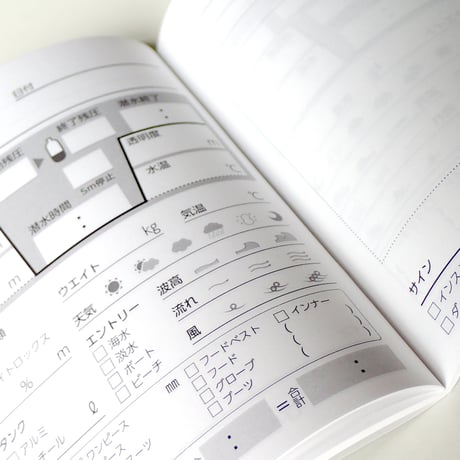 日付
残圧
終了残圧
潜水終了
:
透明度 m
水温 ℃
5m停止
潜水時間
:
m
ウエイト kg
気温 ℃
天気
波高
流れ
風
エントリー
海水
淡水
ボート
ビーチ
mm
フードベスト
フード
グローブ
ブーツ
インナー
% m
タンク
アルミ
チール ℓ
ワンピース
ピース
: = 合計 :
サイン
インス
ダ